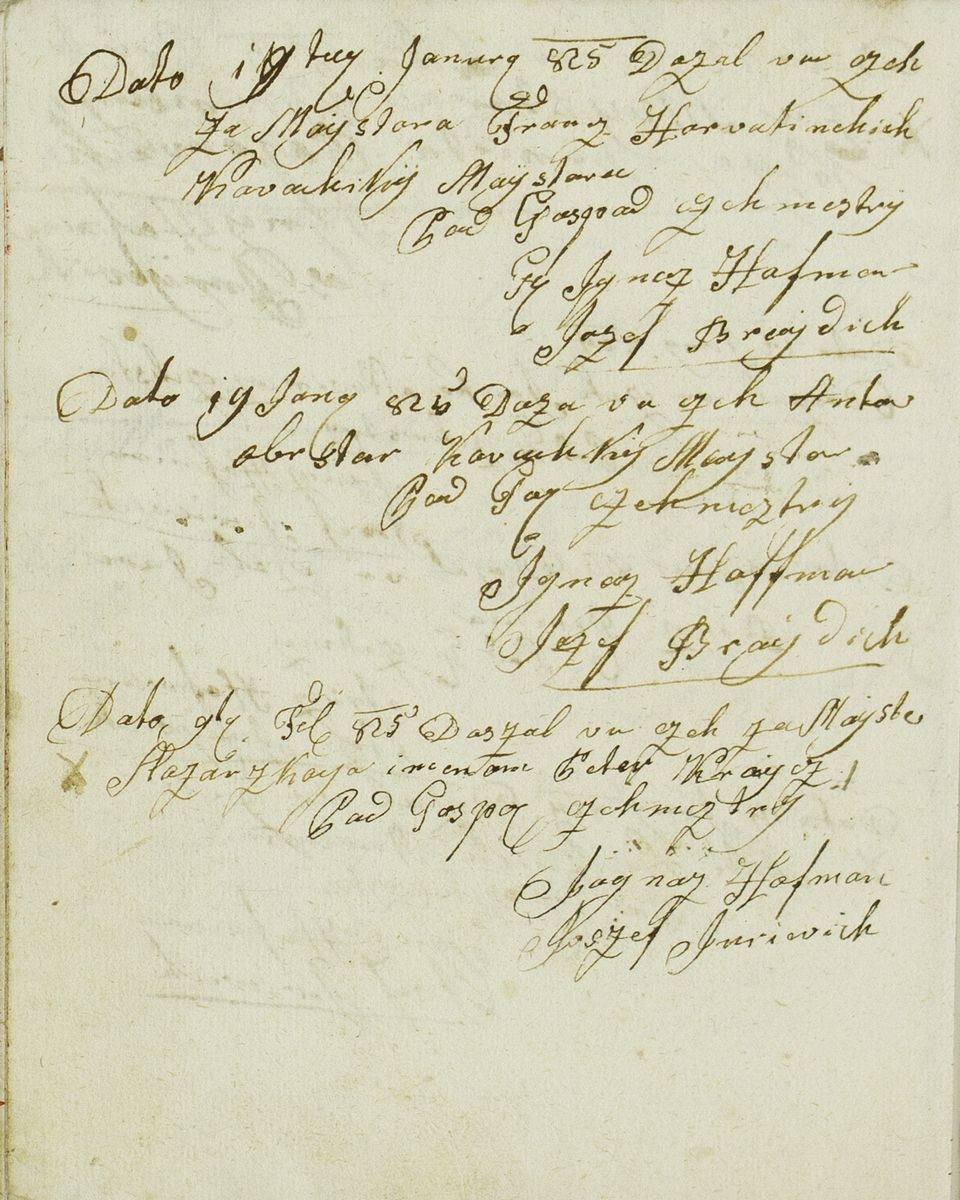 Dato 19 tug Januarg 825 Dozal vu czeh
za Maÿstora Franz Horvatinchich
Kovachkÿ Maÿstaru
Pod Gospod czehmestrÿ
Ignaz Hofman
Jozef Brajdich
Dato 19 Jang 825 Doza vu czeh Anto
oberster Kovachkÿ Maÿstor
Pod Gog czehmeztrÿ
Ignaz Hoffman
Jozef Brajdich
Dato 9tg Feb 825 Doszal vu czeh za Maÿste
Stozarzkoga imenom Peter Kraÿcz
Pod Gospo czehmeztrÿ
Jognaz Hofman
Joszef Juriwich